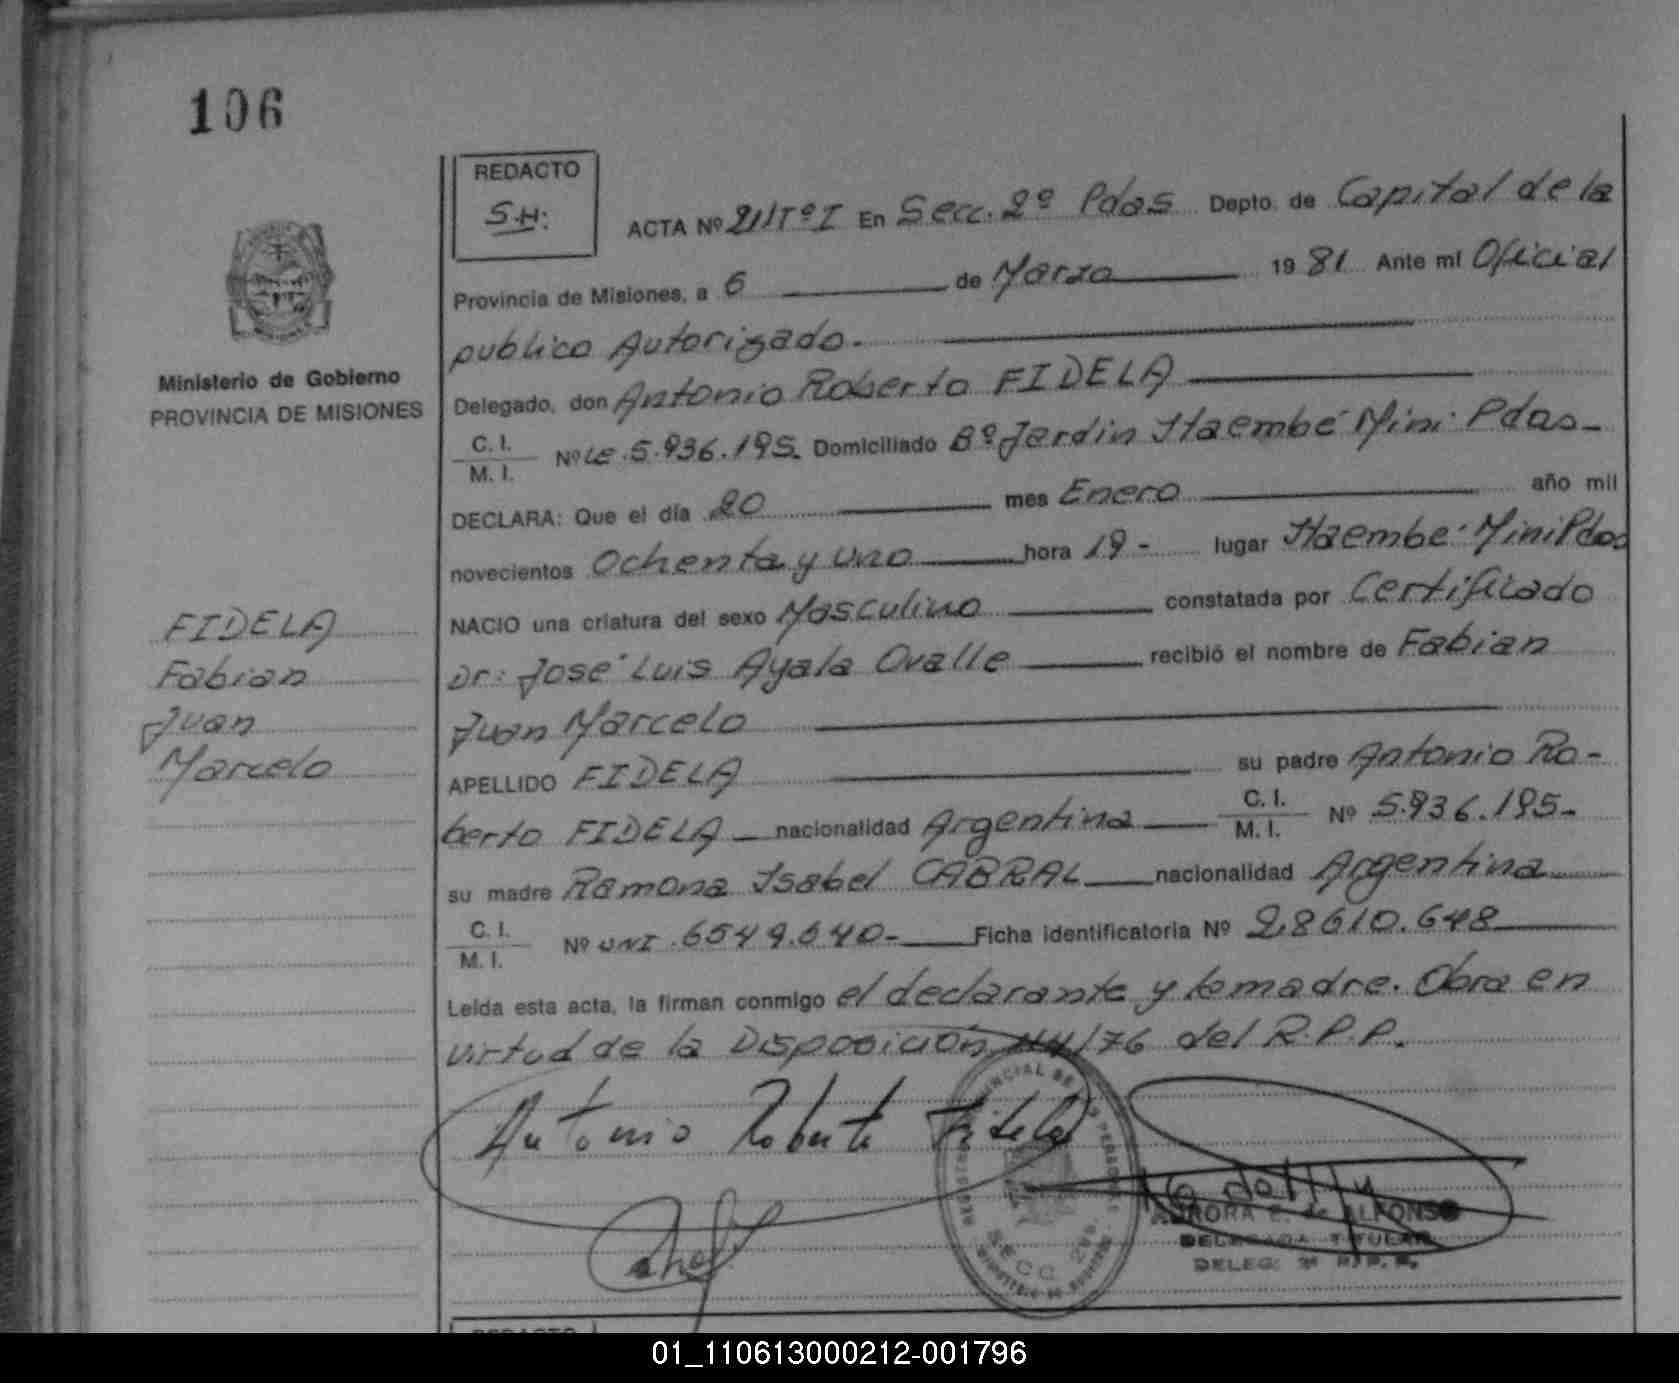 106
REDACTO
S.H:
ACTA Nº 211TºI En Secc. 2º Pdas Depto. de Capital de la
Provincia de Misiones, a 6 de Marzo 1981 Ante mí Oficial
publico Autorizado.
Delegado, don Antonio Roberto FIDELA
C. I.
M. I. Nº LE. 5.936.195. Domiciliado Bº Jardin Itaembé Mini Pdas-
DECLARA: Que el día 20 mes Enero año mil
novecientos Ochenta y uno hora 19 - lugar Itaembe Mini Pdas
NACIO una criatura del sexo Masculino constatada por Certificado
Dr: José Luis Ayala Ovalle recibió el nombre de Fabian
Juan Marcelo
APELLIDO FIDELA su padre Antonio Ro-
berto FIDELA nacionalidad Argentina C. I. M. I. Nº 5.936.195-
su madre Ramona Isabel CABRAL nacionalidad Argentina
C. I.
M. I. Nº UNI. 6549.640- Ficha identificatoria Nº 28610.648
Leída esta acta, la firman conmigo el declarante y la madre. Obra en
virtud de la Disposición 114/76 del R.P.P.
Antonio Roberto Fidela
AURORA E. de ALFONSO
DELEGADA TITULAR
DELEG. 2ª R.P.P.
SECC. 2ª
Ministerio de Gobierno
PROVINCIA DE MISIONES
FIDELA
Fabian
Juan
Marcelo
REDACTO
01_110613000212-001796